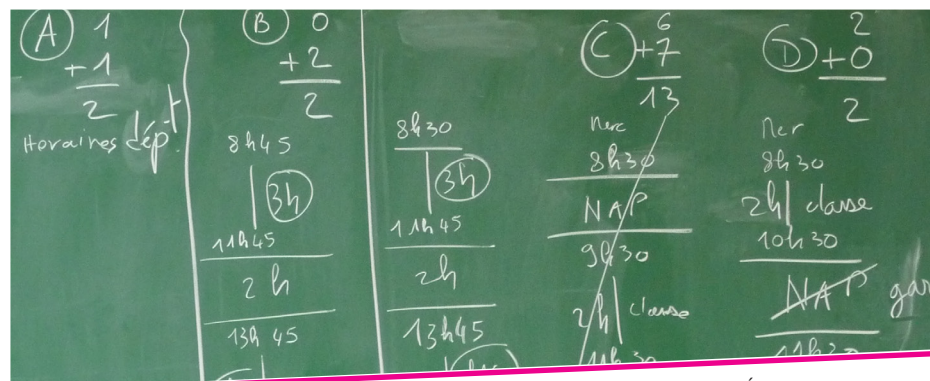 A 1
+1
2
Horaires dép.t
B 0
+2
2
8h45
3h
11h45
2h
13h45
8h30
3h
11h45
2h
13h45
C 6
+7
13
Merc
8h30
NAP
9h30
2h classe
11h30
D 2
+0
2
Mer
8h30
2h classe
10h30
NAP gar
11h30